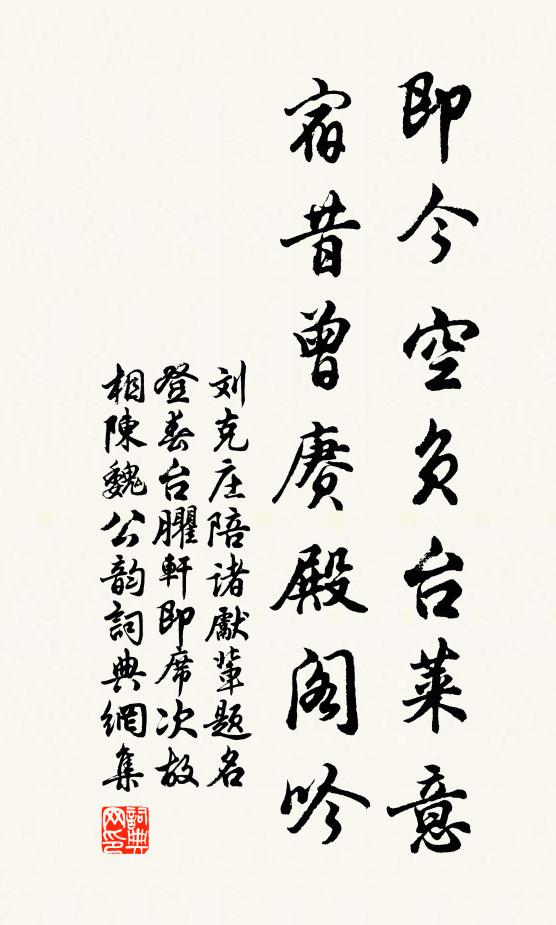 即今空负台莱意
宿昔曾赓殿阁吟
刘克庄陪诸獻軰题名
登春台臞軒即席次故
相陳魏公韵詞典網集
詞典网印